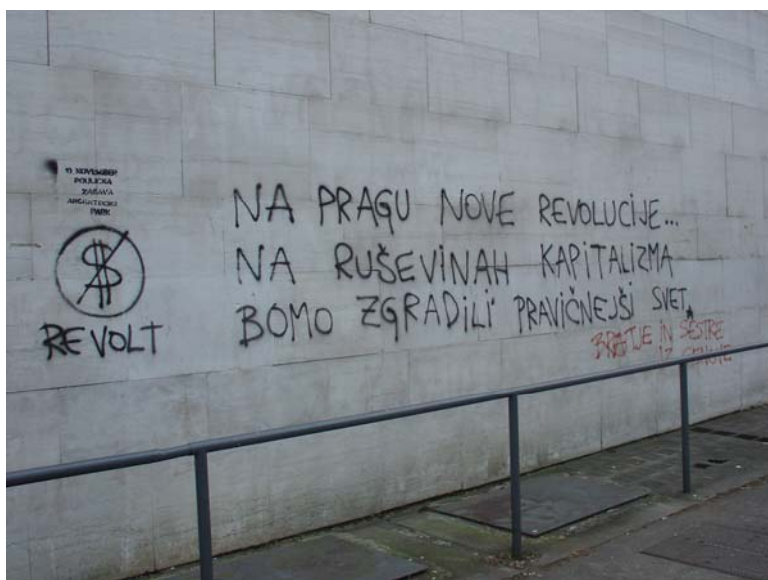 NOVEMBER
PARK
$
REVOLT
NA PRAGU NOVE REVOLUCIJE...
NA RUŠEVINAH KAPITALIZMA
BOMO ZGRADILI PRAVIČNEJŠI SVET
BRATJE IN SESTRE
IZ